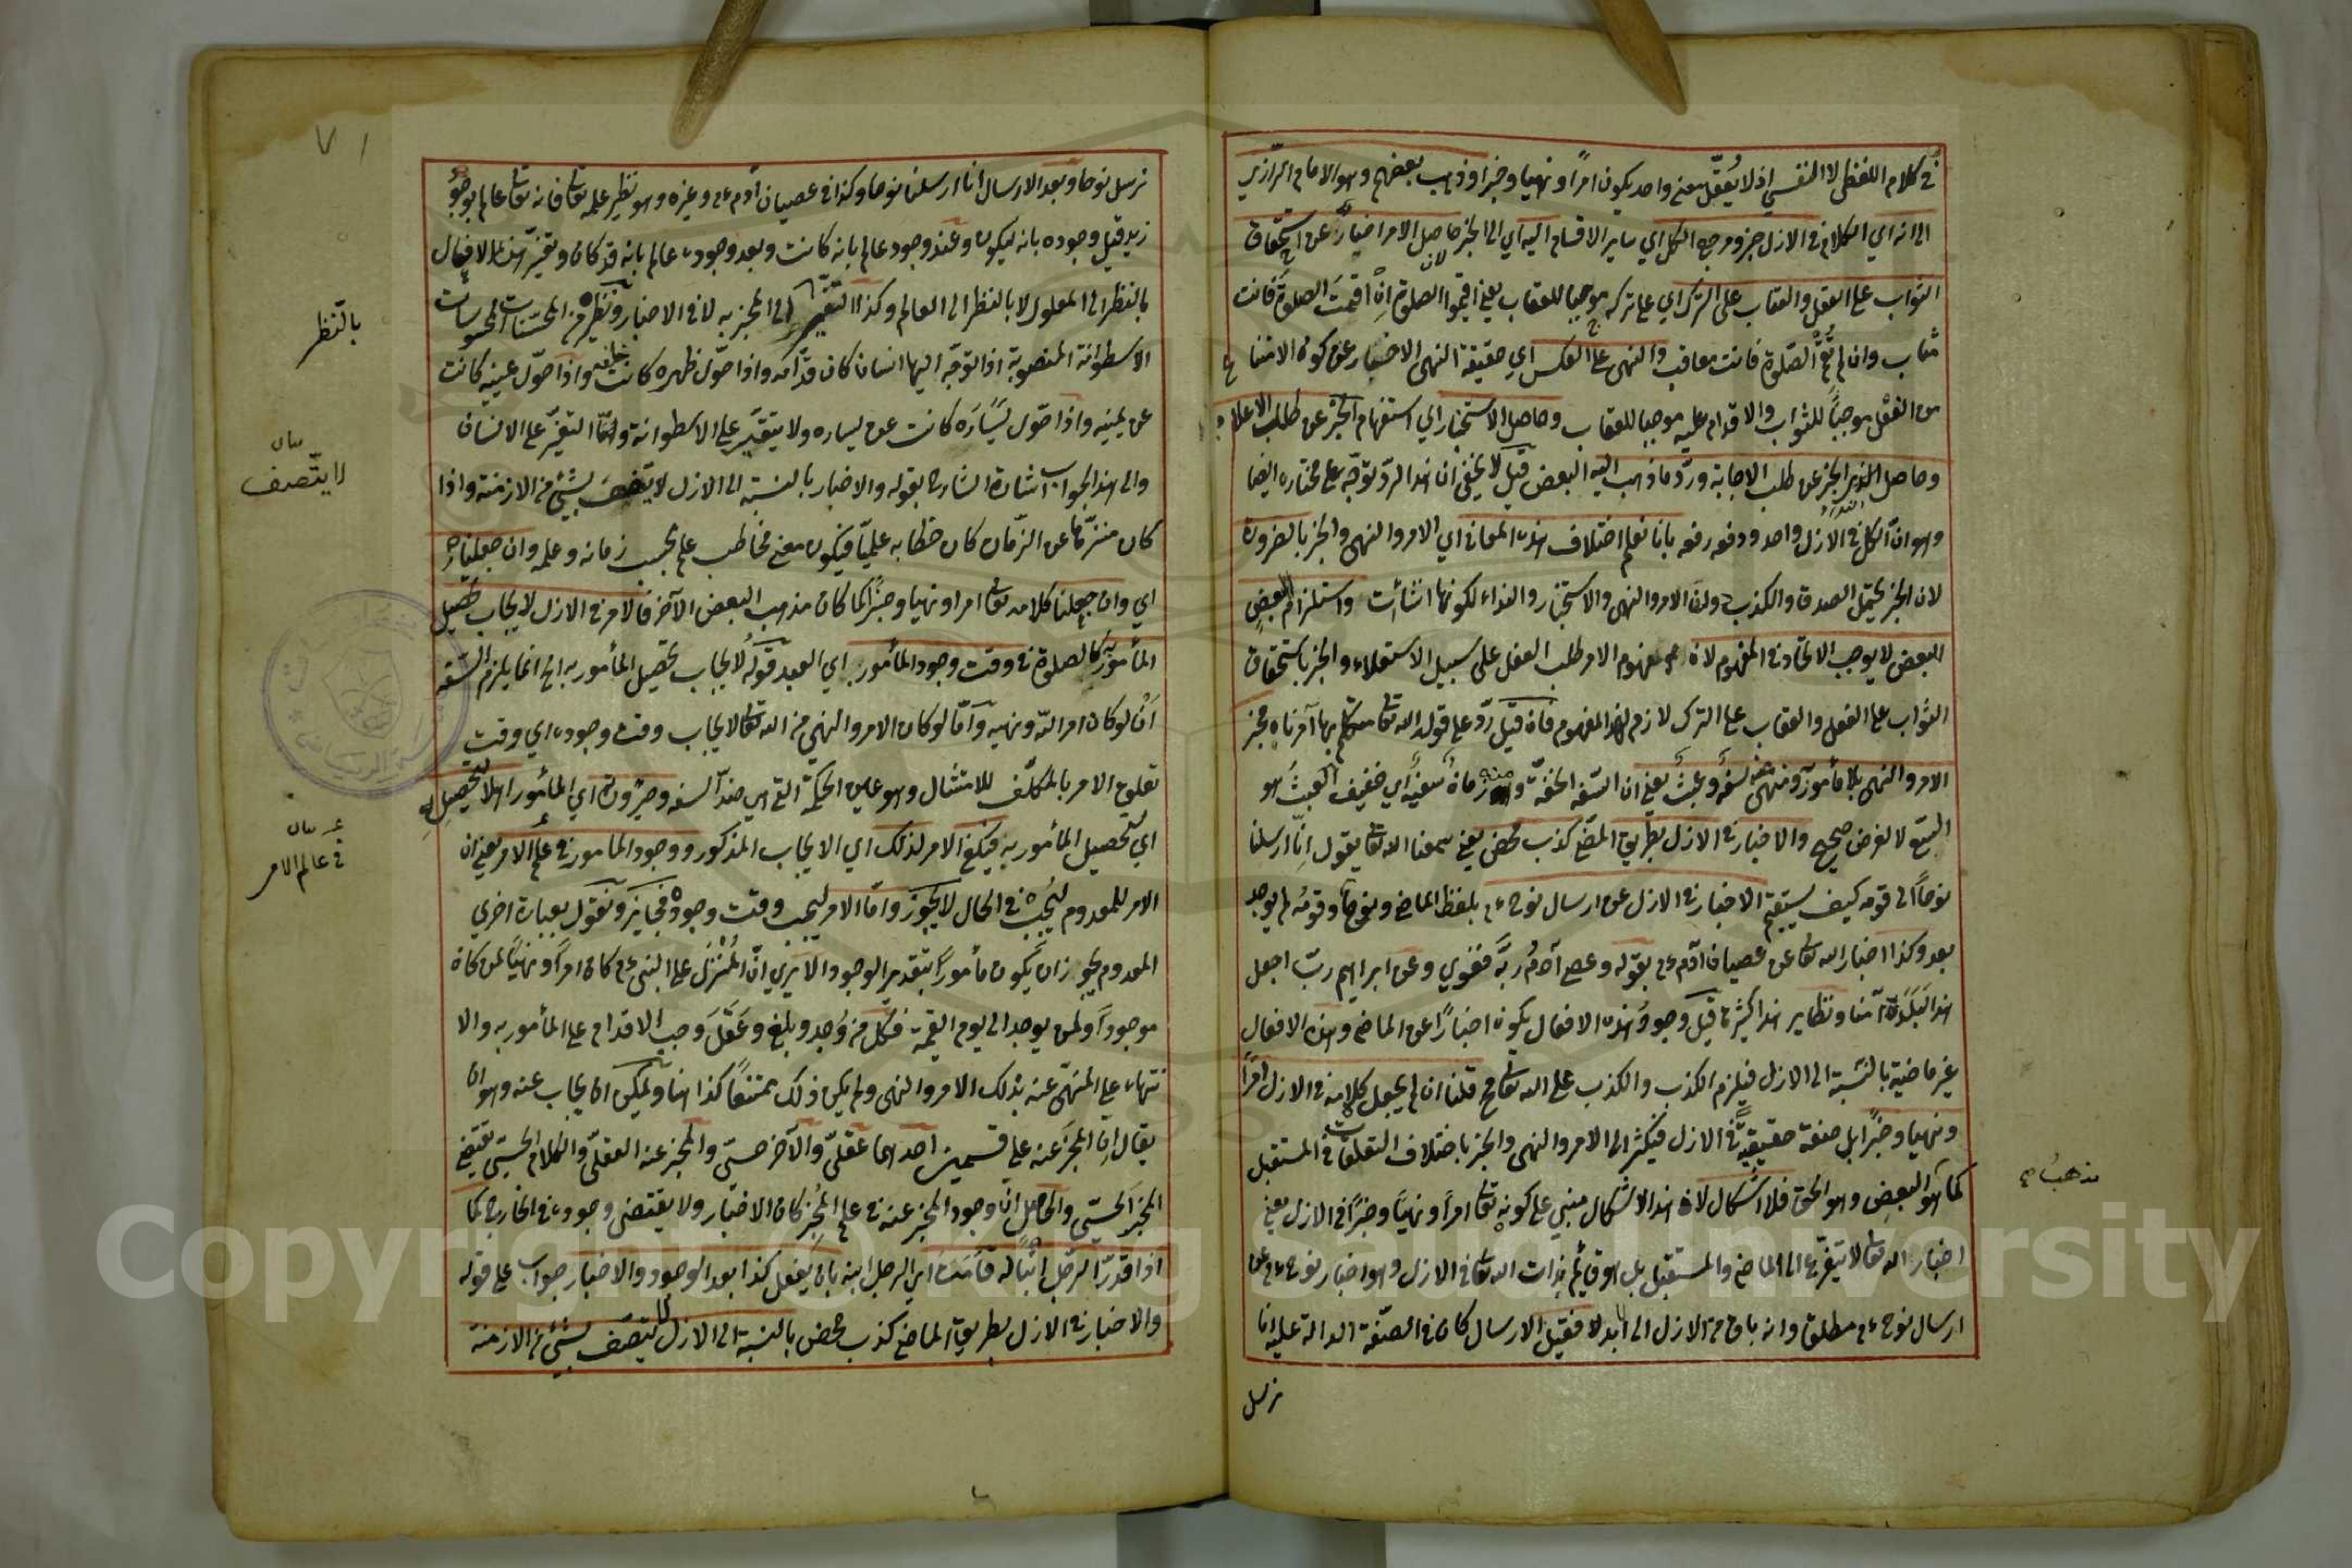 في كلام اللفظي لا النفسي اذ لا يُعقل معنى واحد يكون امرًا ونهيا وخبرا وذهب بعضهم وهو الامام الرّازي
الى انه اي الكلام في الازل خبر ومرجع الكل اي ساير الاقسام اليه اي الى الخبر لان حاصل الامر اخبارٌ عن استحقاق
الثواب على الفعل والعقاب على الترك اي على تركه موجبا للعقاب يعني اقيموا الصلوة اِن اقمت الصلوة فانت
مثاب وان لم تُقم الصّلوة فانت معاقب والنهى على العكس اي حقيقة النهى الاخبار عن كون الامتناع
من الفعل موجبًا للثواب والاقدام عليه موجبا للعقاب وحاصل الاستخبار اي استفهام الخبر عن طلب الاعلام
وحاصل النداء الخبر عن طلب الاجابة وردّ ما ذهب اليه البعض قيل لا يخفى ان هذا الردّ يتوجّه على مختاره ايضا
وهو ان الكل في الازل واحد ودفعه رفعه بانا نعلم اختلاف هذه المعاني اي الامر والنهى والخبر بالضرورة
لان الخبر يحتمل الصدق والكذب دون الامر والنهى والاستخبار والنداء لكونها انشائت واستلزام البعض
البعض لا يوجب الاتحاد في المفهوم لان مفهوم الامر طلب الفعل على سبيل الاستعلاء والخبر باستحقاق
الثواب على الفعل والعقاب على الترك لازم لهذا المفهوم فان قيل ردّ على قوله الله تعالى متكلم بها آمر ناه مخبر
الامر والنهى بلا مأمور ومنهى عنه سفهٌ وعبثٌ يعني ان السّفه الخفّة ومنه زمامٌ سفيهٌ اي خفيف العبث هو
لا لغرض صحيح والاخبار في الازل بطريق المضي كذب محض يعني سمعنا الله تعالى يقول اِنّا ارسلنا
نوحًا الى قومه كيف يستقيم الاخبار في الازل عن ارسال نوح عم بلفظ الماضي ونوحٌ وقومُه لم يوجد
بعد وكذا اخبار الله تعالى عن عصيان آدم عم بقوله وعصى آدمُ ربَّه فغوى وعن ابراهيم ربّ اجعل
هذا البلدَ آمنا ونظاير هذا كثيرة قبل وجود هذه الافعال يكون اخبارًا عن الماضي وهذه الافعال
غير ماضية بالنسبة الى الازل فيلزم الكذب والكذب على الله تعالى مح قلنا ان لم يجعل كلامه في الازل امرًا
ونهيا وخبرًا بل صفة حقيقيّة في الازل فيكثر الى الامر والنهى والخبر باختلاف التعلقات في المستقبل
كما هو البعض وهو الحق فلا اشكال لان هذا الاشكال مبني على كونه تعالى امرًا ونهيًا وخبرًا في الازل يعني
اخبار الله تعالى لا يتغير الى الماضي والمستقبل بل هو قائم بذات الله تعالى في الازل وهو اخبار نوح عم عن
ارسال نوح عم مطلق وانه باق من الازل الى الابد فقبل الارسال كان في الصّفة الدالة عليه انا
نرسل
مذهب
نرسل نوحا وبعد الارسال انا ارسلنا نوحا وكذا في عصيان آدم عم وغيره وهو نظير علمه تعالى فانه تعالى عالم بوجود
زيد قبل وجوده بانه ليكون وعند وجوده عالم بانه كانت وبعد وجوده عالم بانه قد كان وتغيّر هذه الافعال
بالنظر الى المعلول لا بالنظر الى العالم وكذا التغير الى المخبر به لا في الاخبار ونظيره من الحسّيات المحسوسات
الاسطوانة المنصوبة اذا توجّه اليها انسان كان قدّامه واذا حوّل ظهره كانت خلفه واذا حوّل يمينه كانت
عن يمينه واذا حوّل يسَاره كانت عن يساره ولا يتغير على الاسطوانة وانما التغيّر على الانسان
والى هذا الجواب اشارة الشارح بقوله والاخبار بالنسبة الى الازل لا يتصف بشيئ من الازمنة واذا
كان منزّها عن الزّمان كان خطابه علميّا فيكون معنى مخاطب على بحسب زمانه وعلمه وان جعلناه
اي وان جعلنا كلامه تعالى امرا ونهيا وخبرًا كما كان مذهب البعض الآخر فالامر في الازل لايجاب تحصيل
المأمور به كالصلوة في وقت وجود المأمور اي العبد قوله لايجاب تحصيل المأمور به الخ انما يلزم السّفه
اَنْ لو كان امر الله ونهيه وامّا لو كان الامر والنهي من الله تعالى لايجاب وقت وجوده اي وقت
تعلق الامر بالمكلّف للامتثال وهو عين الحكمة التي هي ضدّ السفه وصيرورته اي المأمور اهلا لتحصيله
اي لتحصيل المأمور به فيكفي الامر لذلك اي الايجاب المذكور ووجود المأمور في علم الامر يعني ان
الامر للمعدوم ليجب في الحال لا يجوز وامّا الامر ليجب وقت وجوده فجايز ونقول بعبارة اخرى
المعدوم يجوز ان يكون مأمورًا بتقدير الوجود الا يرى انّ المُنْزَل على النبي عم كان امرًا ونهيًا لمن كان
موجودًا ولمن يوجد الى يوم القيمة فكلّ من وُجد وبلغ وعَقَلَ وجب الاقدام على المأمور به والا
نتهاء على المنهيّ عنه بذلك الامر والنهى ولم يكن ذلك ممتنعًا كذا هنا ويمكن ان يجاب عنه وهو ان
يقال اِن المخبر عنه على قسمين احدهما عقليّ والآخر حسّي والمخبر عنه العقلي والكلام الحسّي يقتضي
المخبر الحسّي والحاصل ان وجود المخبر عنه في علم المُخبِر كان الاخبار ولا يقتضي وجوده في الخارج كما
اذا قدّر الرجل ابنًا له فامره اي الرجل ابنه بان يفعل كذا بعد الوجود والاخبار جواب على قوله
والاخبار في الازل بطريق الماضي كذب محض بالنسبة الى الازل لا يتصف بشيئ من الازمنة
بالنّظر
بيان
لا يتّصف
بيان
في عالم الامر
٧١
Copyright © King Saud University